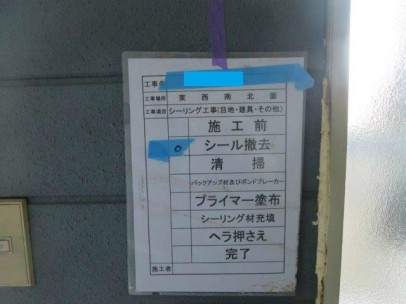 工事名
工事場所 東 西 南 北 面
工事項目 シーリング工事(目地・建具・その他)
施 工 前
シール撤去
清 掃
バックアップ材及びボンドブレーカー
プライマー塗布
シーリング材充填
ヘラ押さえ
完了
施工者